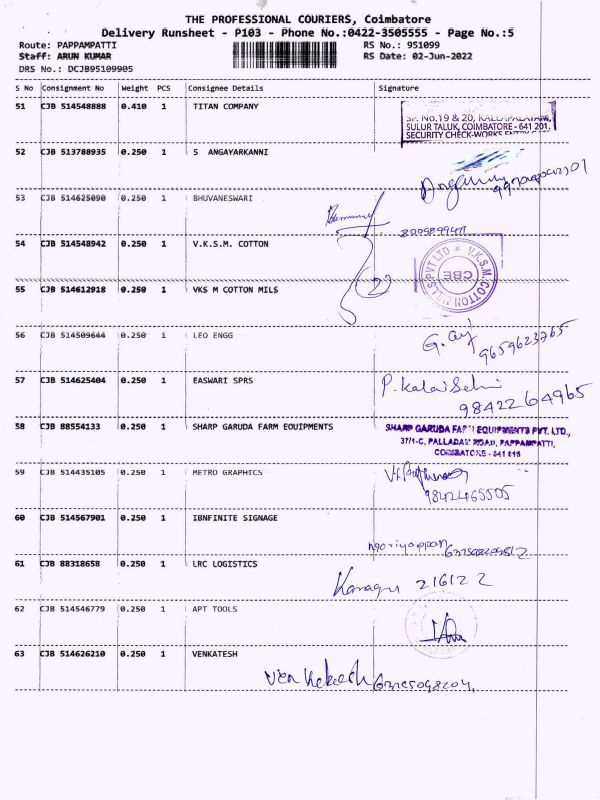 THE PROFESSIONAL COURIERS, Coimbatore
Delivery Runsheet - P103 - Phone No.:0422-3505555 - Page No.:5
Route: PAPPAMPATTI RS No.: 951099
Staff: ARUN KUMAR RS Date: 02-Jun-2022
DRS No.: DCJB95109905
S No Consignment No Weight PCS Consignee Details Signature
51 CJB 514548888 0.410 1 TITAN COMPANY
SF. No,19 & 20, KALLAPALAYAM,
SULUR TALUK, COIMBATORE - 641 201.
SECURITY CHECK-WORKS ENTRY
52 CJB 513788935 0.250 1 S ANGAYARKANNI
53 CJB 514625090 0.250 1 BHUVANESWARI
54 CJB 514548942 0.250 1 V.K.S.M. COTTON
V.K.S.M. COTTON MILLS PVT LTD
CBE
55 CJB 514612918 0.250 1 VKS M COTTON MILS
56 CJB 514509644 0.250 1 LEO ENGG
9659623765
57 CJB 514625404 0.250 1 EASWARI SPRS P. KalaiSelvi
9842264965
58 CJB 88554133 0.250 1 SHARP GARUDA FARM EOUIPMENTS SHARP GARUDA FARM EQUIPMENTS PVT. LTD.,
37/1-C, PALLADAM ROAD, PAPPAMPATTI,
COIMBATORE - 641 016
59 CJB 514435105 0.250 1 METRO GRAPHICS
9842465505
60 CJB 514567901 0.250 1 IBNFINITE SIGNAGE
61 CJB 88318658 0.250 1 LRC LOGISTICS
216122
62 CJB 514546779 0.250 1 APT TOOLS
63 CJB 514626210 0.250 1 VENKATESH
Venkatesh